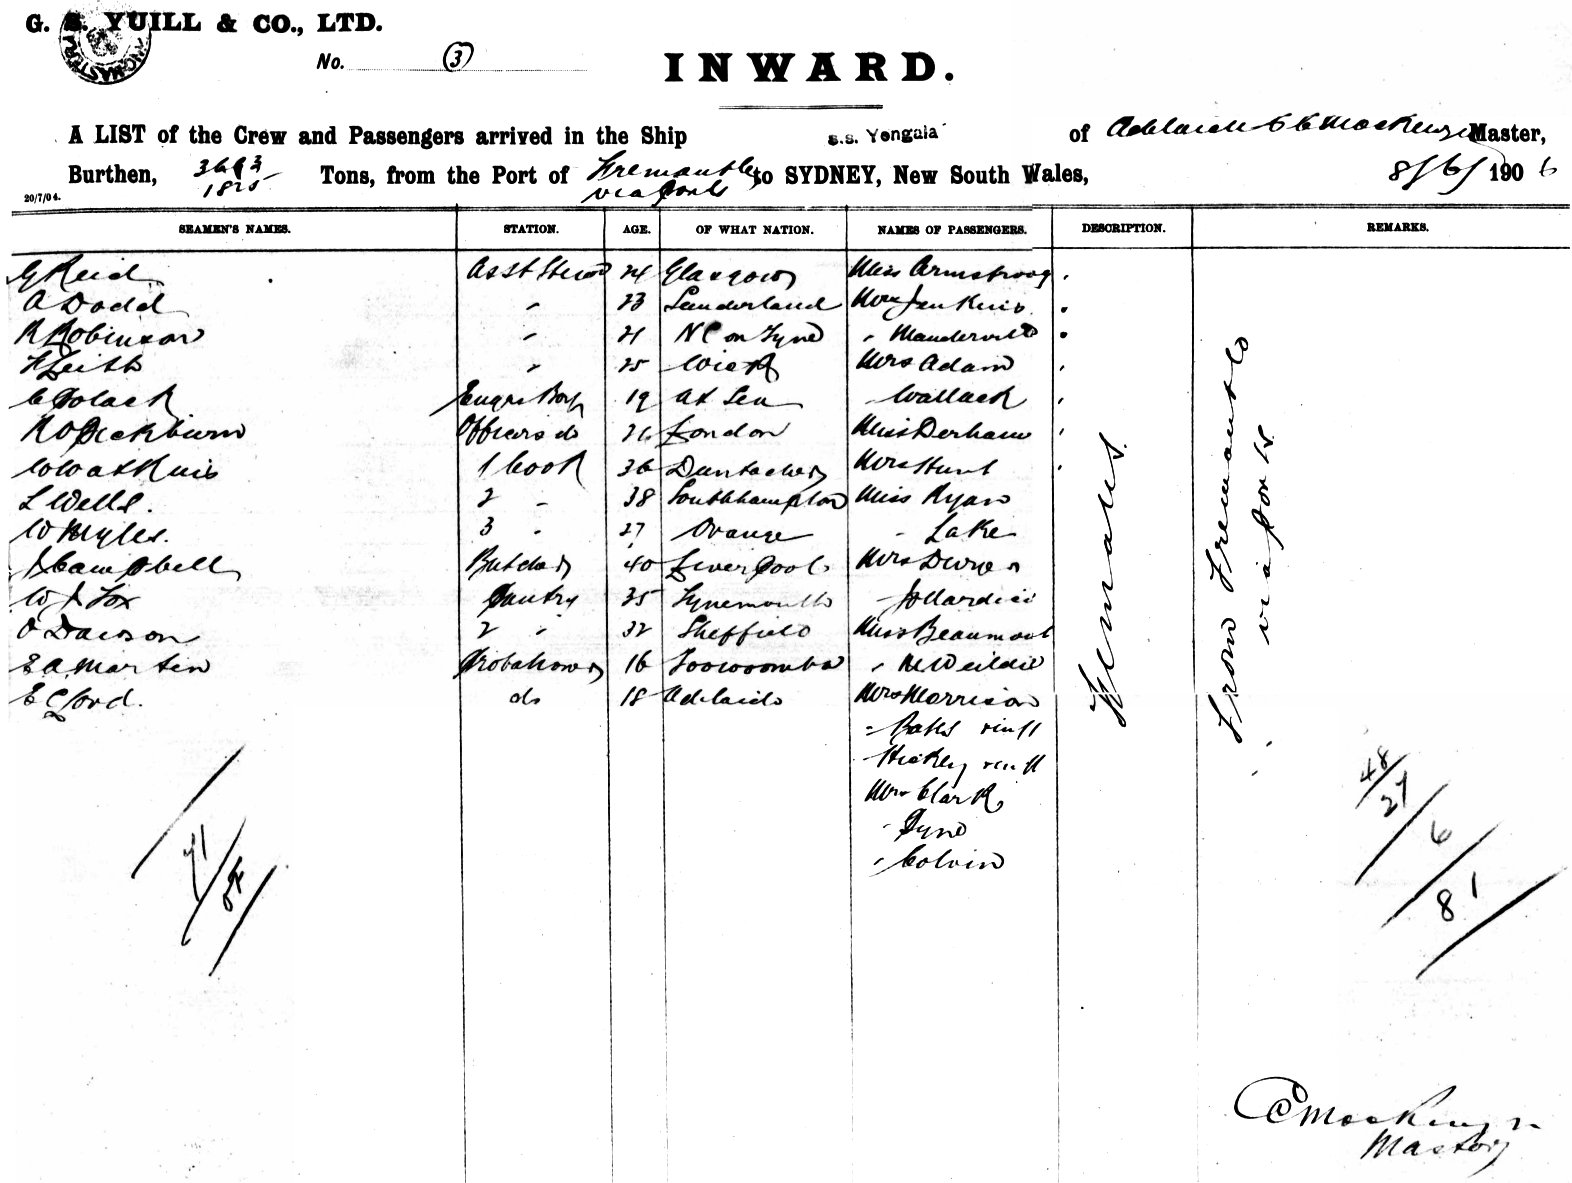 G. S. YUILL & CO., LTD.
No. 3
INWARD.
A LIST of the Crew and Passengers arrived in the Ship s.s. Yongala of Adelaide Master,
Burthen, 3663 Tons, from the Port of Fremantle to SYDNEY, New South Wales, 8/6/ 1906
1825 via ports
20/7/04.
SEAMEN'S NAMES. STATION. AGE. OF WHAT NATION. NAMES OF PASSENGERS. DESCRIPTION. REMARKS.
G Reid Asst Stewd 24 Glasgow Miss Armstrong
A Dodd " 23 Sunderland Jenkins
R Robinson " 21 N C on Tyne " Mandervill
Leith " 25 Wick Mrs Adam
C Polack Engrs Boy 19 At Sea Wallack
R O Pickburn Officers do London Miss Derham
W Watkins 1 Cook 36 Mrs Hunt
L Wells. 2 " 38 Southhampton Miss Ryan
W Myles. 3 " 27 Orange " Lake
J Campbell Butcher 40 Liverpool Mrs Dwyer
W J Fox Pantry 35 Tynemouth
O Dawson 2 " 32 Sheffield Miss Beaumont
E A Martin 16 Toowoomba "
E C Ford. do 18 Adelaide Mrs Morrison
" Baths
Hickey
Mrs Clark
" Pyne
" Colvin
Females.
From Fremantle
via ports
48
27
6
81
C Mackenzie
Master